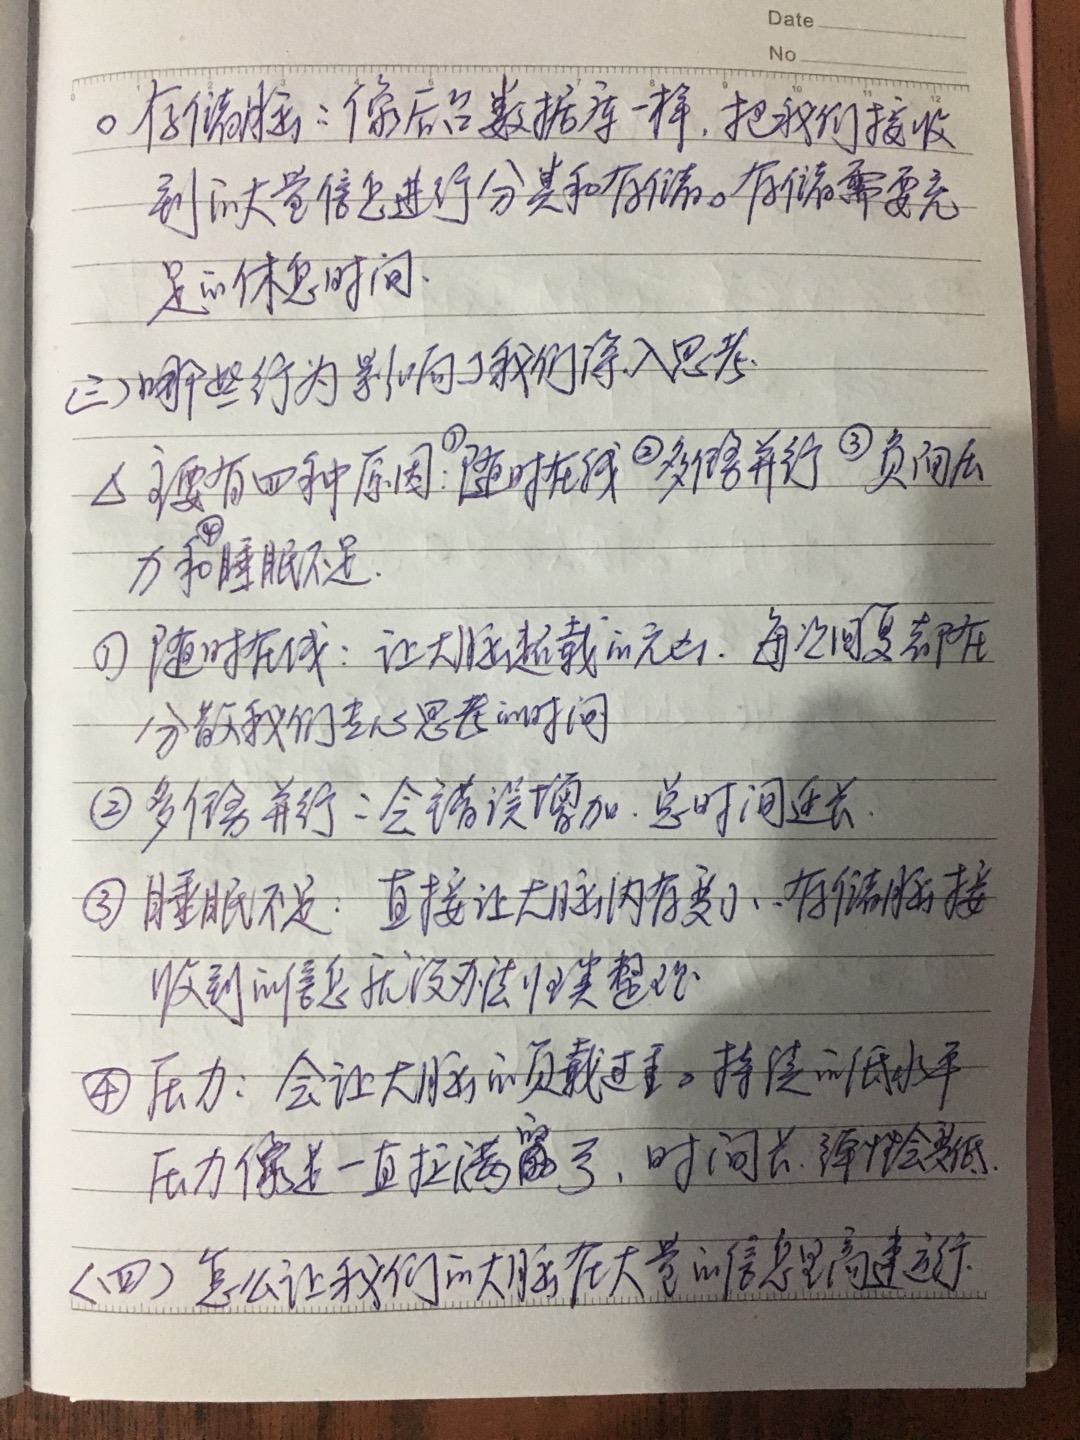 Date
No
0 1 2 3 4 5 6 7 8 9 10 11 12
○ 存储脑：像后台数据库一样，把我们接收
到的大量信息进行分类和存储。存储需要充
足的休息时间.
(三) 哪些行为影响了我们深入思考.
△ 主要有四种原因：①随时在线 ②多任务并行 ③负面压
力和④睡眠不足.
① 随时在线：让大脑超载的元凶. 每次回复都在
分散我们专心思考的时间
② 多任务并行：会错误增加. 总时间延长.
③ 睡眠不足：直接让大脑内存变小. 存储脑接
收到的信息就没办法归类整理
④ 压力：会让大脑的负载过重。持续的低水平
压力像是一直拉满弓，时间长. 弹性会变低.
(四) 怎么让我们的大脑在大量的信息里高速运行.